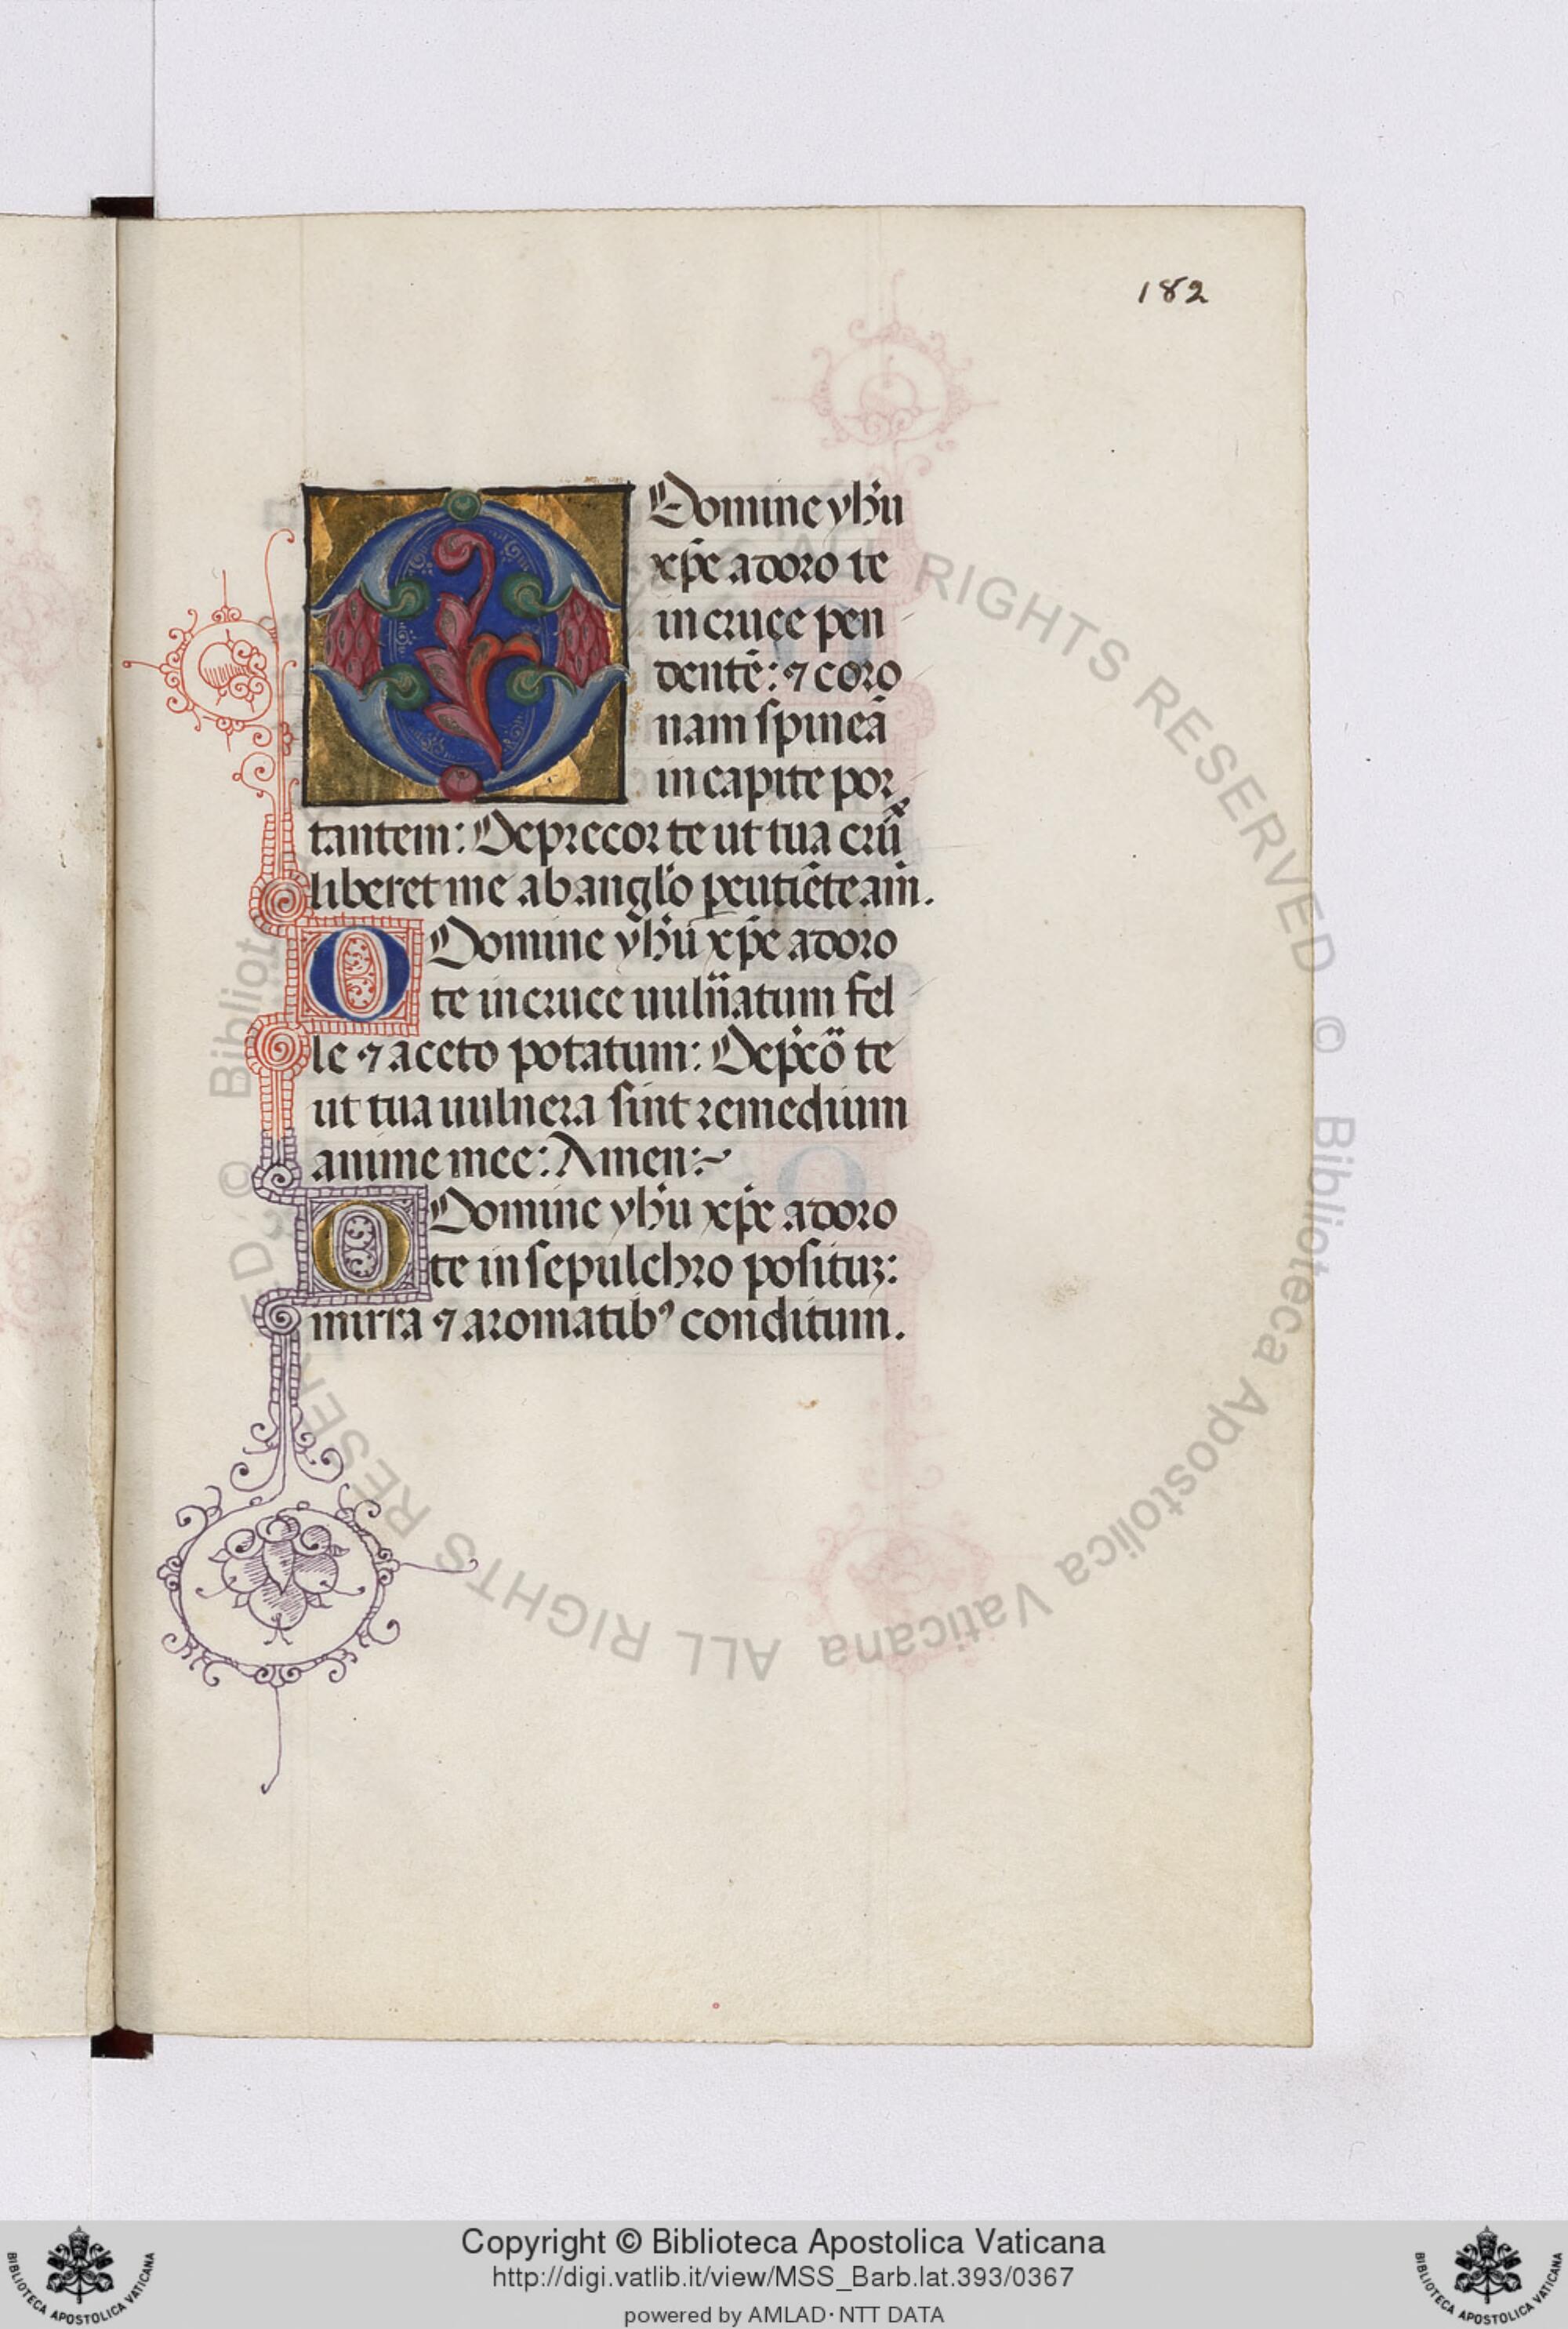 182
O Domine yh̅u
xp̅e adoro te
in cruce pen
dente̅: ⁊ coro
nam spinea̅
in capite por
tantem: Deprecor te ut tua cru̅x
liberet me ab angl̅o ꝑcutie̅te am̅.
O Domine yh̅u xp̅e adoro
te in cruce uuln̅atum fel
le ⁊ aceto potatum: Dep̅co̅ te
ut tua uulnera sint remedium
anime mee: Amen:~
O Domine yh̅u xp̅e adoro
te in sepulchro posituꝫ:
mirra ⁊ aromatibꝰ conditum.
© Biblioteca Apostolica Vaticana ALL RIGHTS RESERVED
Copyright © Biblioteca Apostolica Vaticana
http://digi.vatlib.it/view/MSS_Barb.lat.393/0367
powered by AMLAD・NTT DATA
BIBLIOTECA APOSTOLICA VATICANA
BIBLIOTECA APOSTOLICA VATICANA